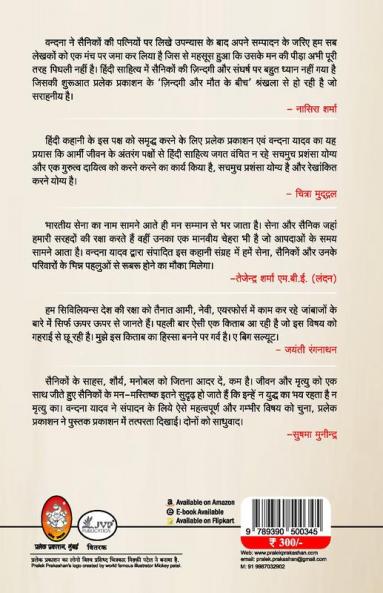 वन्दना ने सैनिकों की पत्नियों पर लिखे उपन्यास के बाद अपने सम्पादन के जरिए हम सब
लेखकों को एक मंच पर जमा कर लिया है जिस से महसूस हुआ कि उसके मन की पीड़ा अभी पूरी
तरह पिघली नहीं है। हिंदी साहित्य में सैनिकों की ज़िन्दगी और संघर्ष पर बहुत ध्यान नहीं गया है
जिसकी शुरूआत प्रलेक प्रकाशन के 'ज़िन्दगी और मौत के बीच' श्रंखला से हो रही है जो
सराहनीय है।
– नासिरा शर्मा
हिंदी कहानी के इस पक्ष को समृद्ध करने के लिए प्रलेक प्रकाशन एवं वन्दना यादव का यह
प्रयास कि आर्मी जीवन के अंतरंग पक्षों से हिंदी साहित्य जगत वंचित न रहे सचमुच प्रशंसा योग्य
और एक गुरुत्व दायित्व को करने करने का कार्य किया है, सचमुच प्रशंसा योग्य है और रेखांकित
करने योग्य है।
– चित्रा मुद्गल
भारतीय सेना का नाम सामने आते ही मन सम्मान से भर जाता है। सेना और सैनिक जहां
हमारी सरहदों की रक्षा करते हैं वहीं उनका एक मानवीय चेहरा भी है जो आपदाओं के समय
सामने आता है। वन्दना यादव द्वारा संपादित इस कहानी संग्रह में हमें सेना, सैनिकों और उनके
परिवारों के भिन्न पहलुओं से रूबरू होने का मौका मिलेगा।
–तेजेन्द्र शर्मा एम.बी.ई. (लंदन)
हम सिविलियन्स देश की रक्षा को तैनात आमी, नेवी, एयरफोर्स में काम कर रहे जांबाजों के
बारे में सिर्फ ऊपर ऊपर से जानते हैं। पहली बार ऐसी एक किताब आ रही है जो इस विषय को
गहराई से छू रही है। मुझे इस किताब का हिस्सा बनने पर गर्व है। ए बिग सल्यूट।
– जयंती रंगनाथन
सैनिकों के साहस, शौर्य, मनोबल को जितना आदर दें, कम है। जीवन और मृत्यु को एक
साथ जीते हुए सैनिकों के मन-मस्तिष्क इतने सुदृढ़ हो जाते हैं कि इन्हें न युद्ध का भय रहता है न
मृत्यु का। वन्दना यादव ने संपादन के लिये ऐसे महत्वपूर्ण और गम्भीर विषय को चुना, प्रलेक
प्रकाशन ने पुस्तक प्रकाशन में तत्परता दिखाई। दोनों को साधुवाद।
–सुषमा मुनीन्द्र
प्रलेक प्रकाशन, मुंबई
JVP
PUBLICATION
वितरक
Available on Amazon
E-book Available
Available on Flipkart
9 789390 500345
₹ 300/-
Web: www.pralekprakashan.com
email: pralekprakashan@gmail.com
M: 91 9867032902
प्रलेक प्रकाशन का लोगो विश्व प्रसिद्ध चित्रकार मिक्की पटेल ने बनाया है.
Pralek Prakashan's logo created by world famous illustrator Mickey patel.